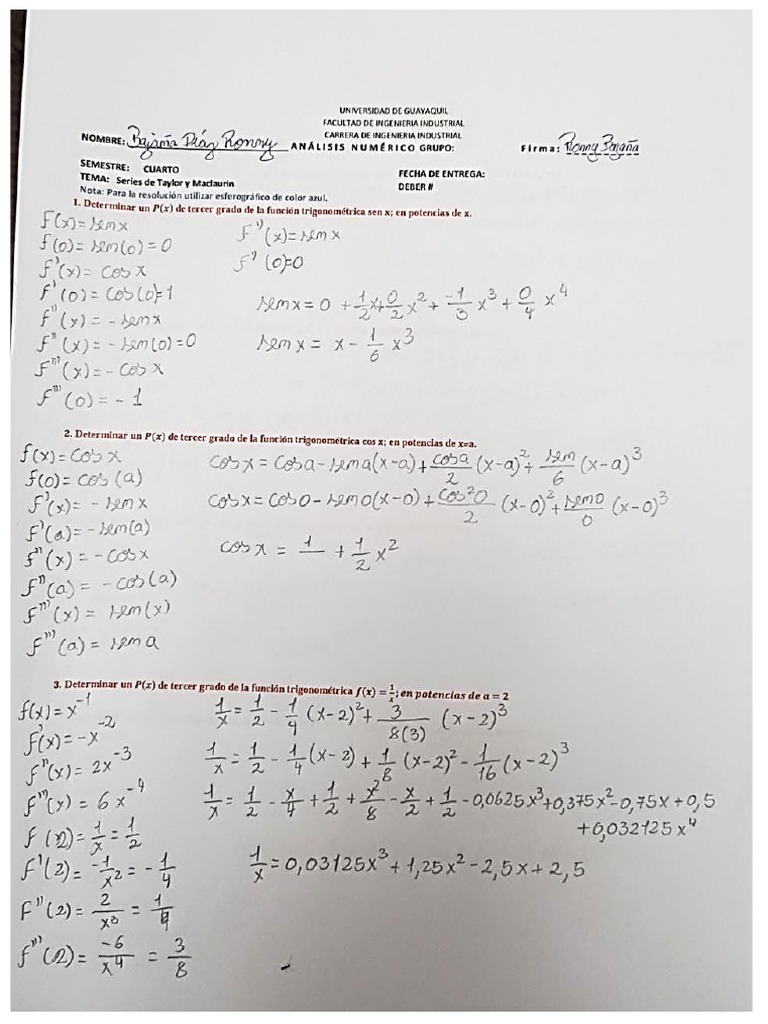 UNIVERSIDAD DE GUAYAQUIL
FACULTAD DE INGENIERIA INDUSTRIAL
CARRERA DE INGENIERIA INDUSTRIAL
NOMBRE: Bajaña Díaz Ronny ANÁLISIS NUMÉRICO GRUPO: Firma: Ronny Bajaña
SEMESTRE: CUARTO FECHA DE ENTREGA:
TEMA: Series de Taylor y Maclaurin DEBER #
Nota: Para la resolución utilizar esferográfico de color azul.
1. Determinar un P(x) de tercer grado de la función trigonométrica sen x; en potencias de x.
f(x)= sen x
f(0)= sen(0)=0
f'(x)= cos x
f'(0)= cos(0)=1
f''(x)= - sen x
f''(x)= - sen(0)=0
f'''(x)= - cos x
f'''(0)= - 1
f''(x)= sen x
f''(0)=0
sen x = 0 + 1/2 x + 0/2 x² + -1/3 x³ + 0/4 x⁴
sen x = x - 1/6 x³
2. Determinar un P(x) de tercer grado de la función trigonométrica cos x; en potencias de x=a.
f(x)= cos x
f(0)= cos (a)
f'(x)= - sen x
f'(a)= - sen(a)
f''(x)= - cos x
f''(a)= - cos(a)
f'''(x)= sen(x)
f'''(a)= sen a
cos x = cos a - sen a(x-a) + cos a/2 (x-a)² + sen/6 (x-a)³
cos x = cos 0 - sen 0(x-0) + cos²0/2 (x-0)² + sen0/0 (x-0)³
cos x = 1 + 1/2 x²
3. Determinar un P(x) de tercer grado de la función trigonométrica f(x) = 1/x; en potencias de a = 2
f(x)= x⁻¹
f'(x)= -x⁻²
f''(x)= 2x⁻³
f'''(x)= 6x⁻⁴
f(2)= 1/x = 1/2
f'(2)= -1/x² = - 1/4
f''(2)= 2/x³ = 1/4
f'''(2)= -6/x⁴ = 3/8
1/x = 1/2 - 1/4 (x-2)² + 3/8(3) (x-2)³
1/x = 1/2 - 1/4 (x-2) + 1/8 (x-2)² - 1/16 (x-2)³
1/x = 1/2 - x/4 + 1/2 + x²/8 - x/2 + 1/2 - 0,0625x³ + 0,375x² - 0,75x + 0,5
+ 0,032125x⁴
1/x = 0,03125x³ + 1,25x² - 2,5x + 2,5